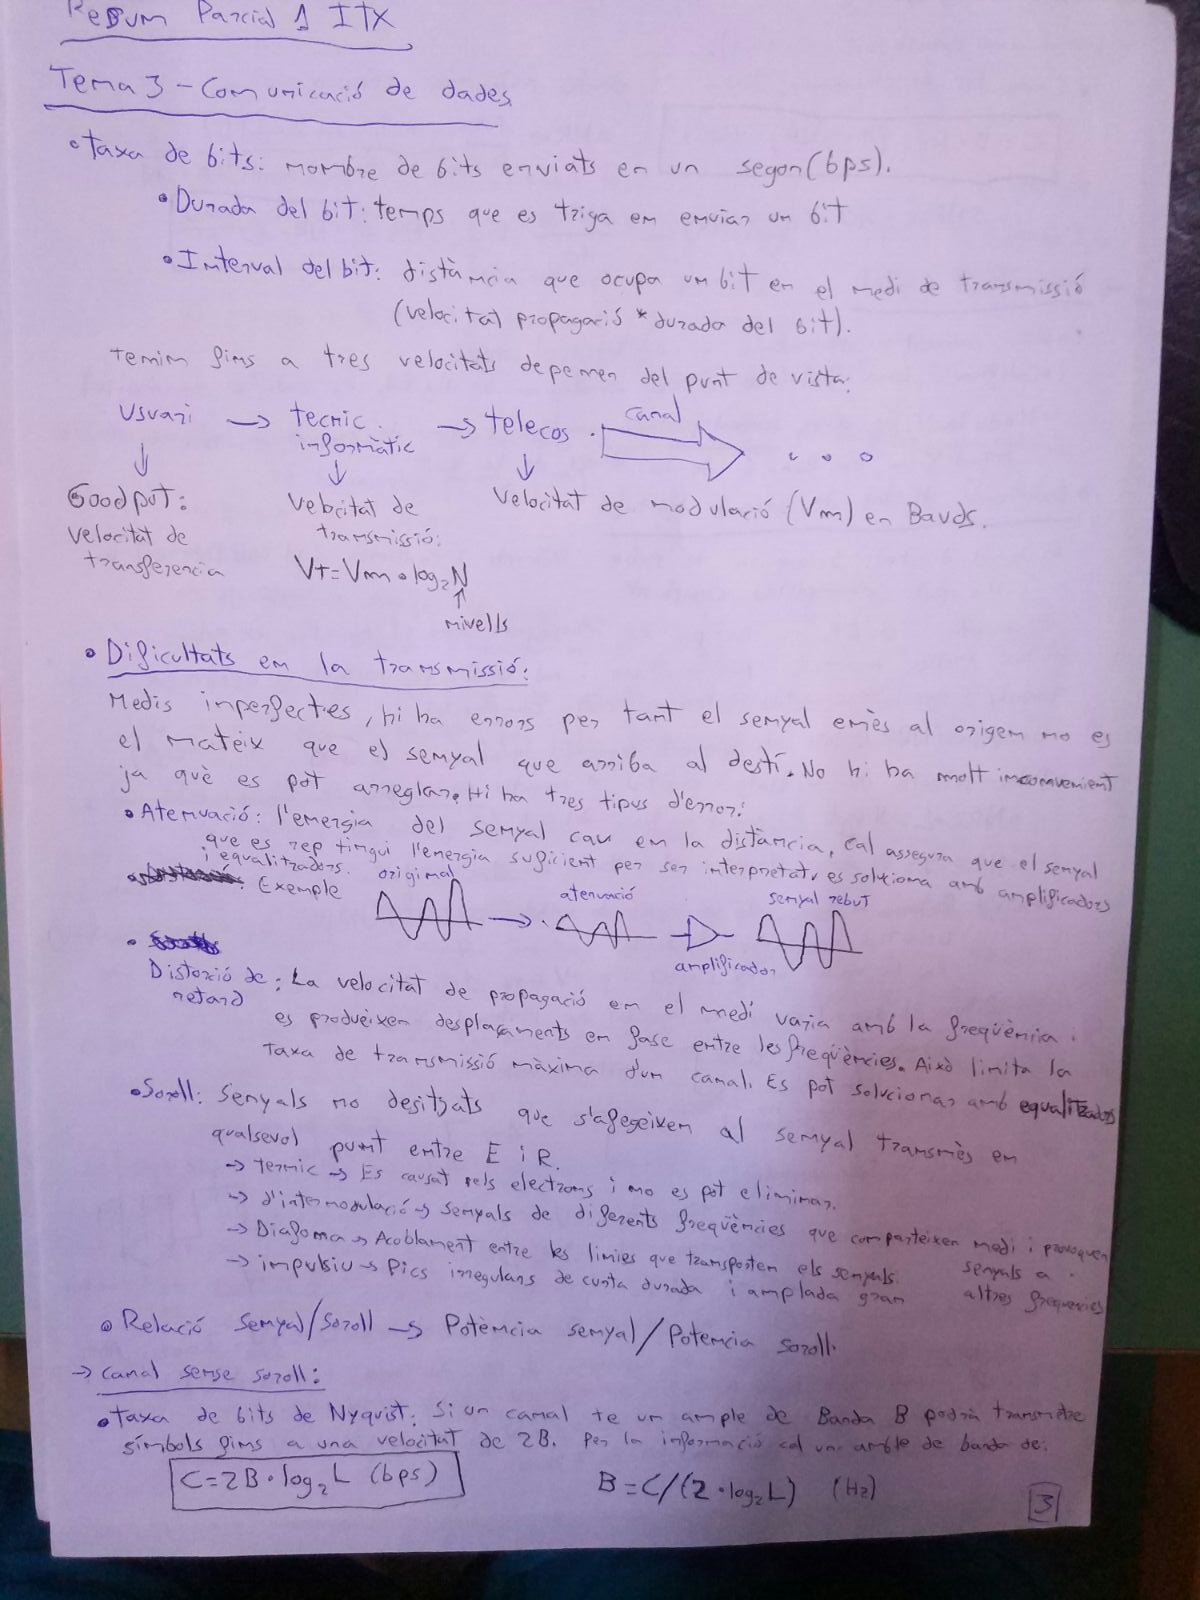 Resum Parcial 1 ITX
Tema 3 - Comunicació de dades
• Taxa de bits: nombre de bits enviats en un segon (bps).
• Durada del bit: temps que es triga en enviar un bit
• Interval del bit: distància que ocupa un bit en el medi de transmissió
(velocitat propagació * durada del bit).
Tenim fins a tres velocitats depenen del punt de vista:
Usuari → tecnic informàtic → telecos canal
Goodput: velocitat de transferencia
Velocitat de transmissió:
Vt = Vm • log₂N
nivells
Velocitat de modulació (Vm) en Bauds.
• Dificultats en la transmissió:
Medis inperfectes, hi ha errors per tant el senyal emès al origen no es
el mateix que el senyal que arriba al destí. No hi ha molt inconvenient
ja què es pot arreglar. Hi ha tres tipus d'error:
• Atenuació: l'energia del senyal cau en la distància, cal assegura que el senyal
que es rep tingui l'energia suficient per ser interpretat, es soluciona amb amplificadors
i equalitzadors.
Exemple
original → atenuació amplificador senyal rebut
Distorció de retard: La velocitat de propagació en el medi varia amb la freqüència.
es produeixen desplaçaments en fase entre les freqüències. Això limita la
taxa de transmissió màxima d'un canal. Es pot solucionar amb equalitzadors
• Soroll: Senyals no desitjats que s'afegeixen al senyal transmès en
qualsevol punt entre E i R.
→ termic → Es causat pels electrons i no es pot eliminar.
→ d'intermodulació → senyals de diferents freqüències que comparteixen medi i provoquen
senyals a altres freqüencies
→ Diafonia → Acoblament entre les línies que transporten els senyals.
→ impulsiu → Pics irregulars de curta durada i amplada gran
• Relació Senyal/Soroll → Potència senyal/Potencia soroll.
→ canal sense soroll:
• Taxa de bits de Nyquist: Si un canal te un ample de Banda B podrà transmetre
símbols fins a una velocitat de 2B. Per la informació cal un amble de banda de:
C = 2B • log₂L (bps)
B = C/(2 • log₂L) (Hz)
3